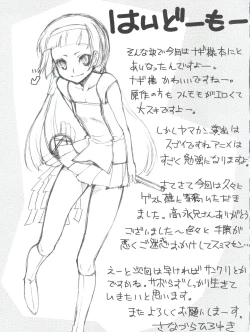 はいどーもー
そんな訳で今回はナギ様本にと
あいなったんですよー。
ナギ様 かわいいですねー。
原作の方もつんもモがエロくて
大スキですよー。
しかしヤマカン演出は
スゴイですねアニメは
すごく勉強になりますな。
さてさて今回は久々に
ゲスト様に寄稿いただき
ました。高永さんありがとう
ございましたー色々と手際が
悪くご迷惑おかけしてスミマセン…
えーと次回は早ければサンクリとか
ですかね。サボらずしっかり生きて
いきたいと思います。
またよろしくお願いしまーす。
さなづらひろゆき